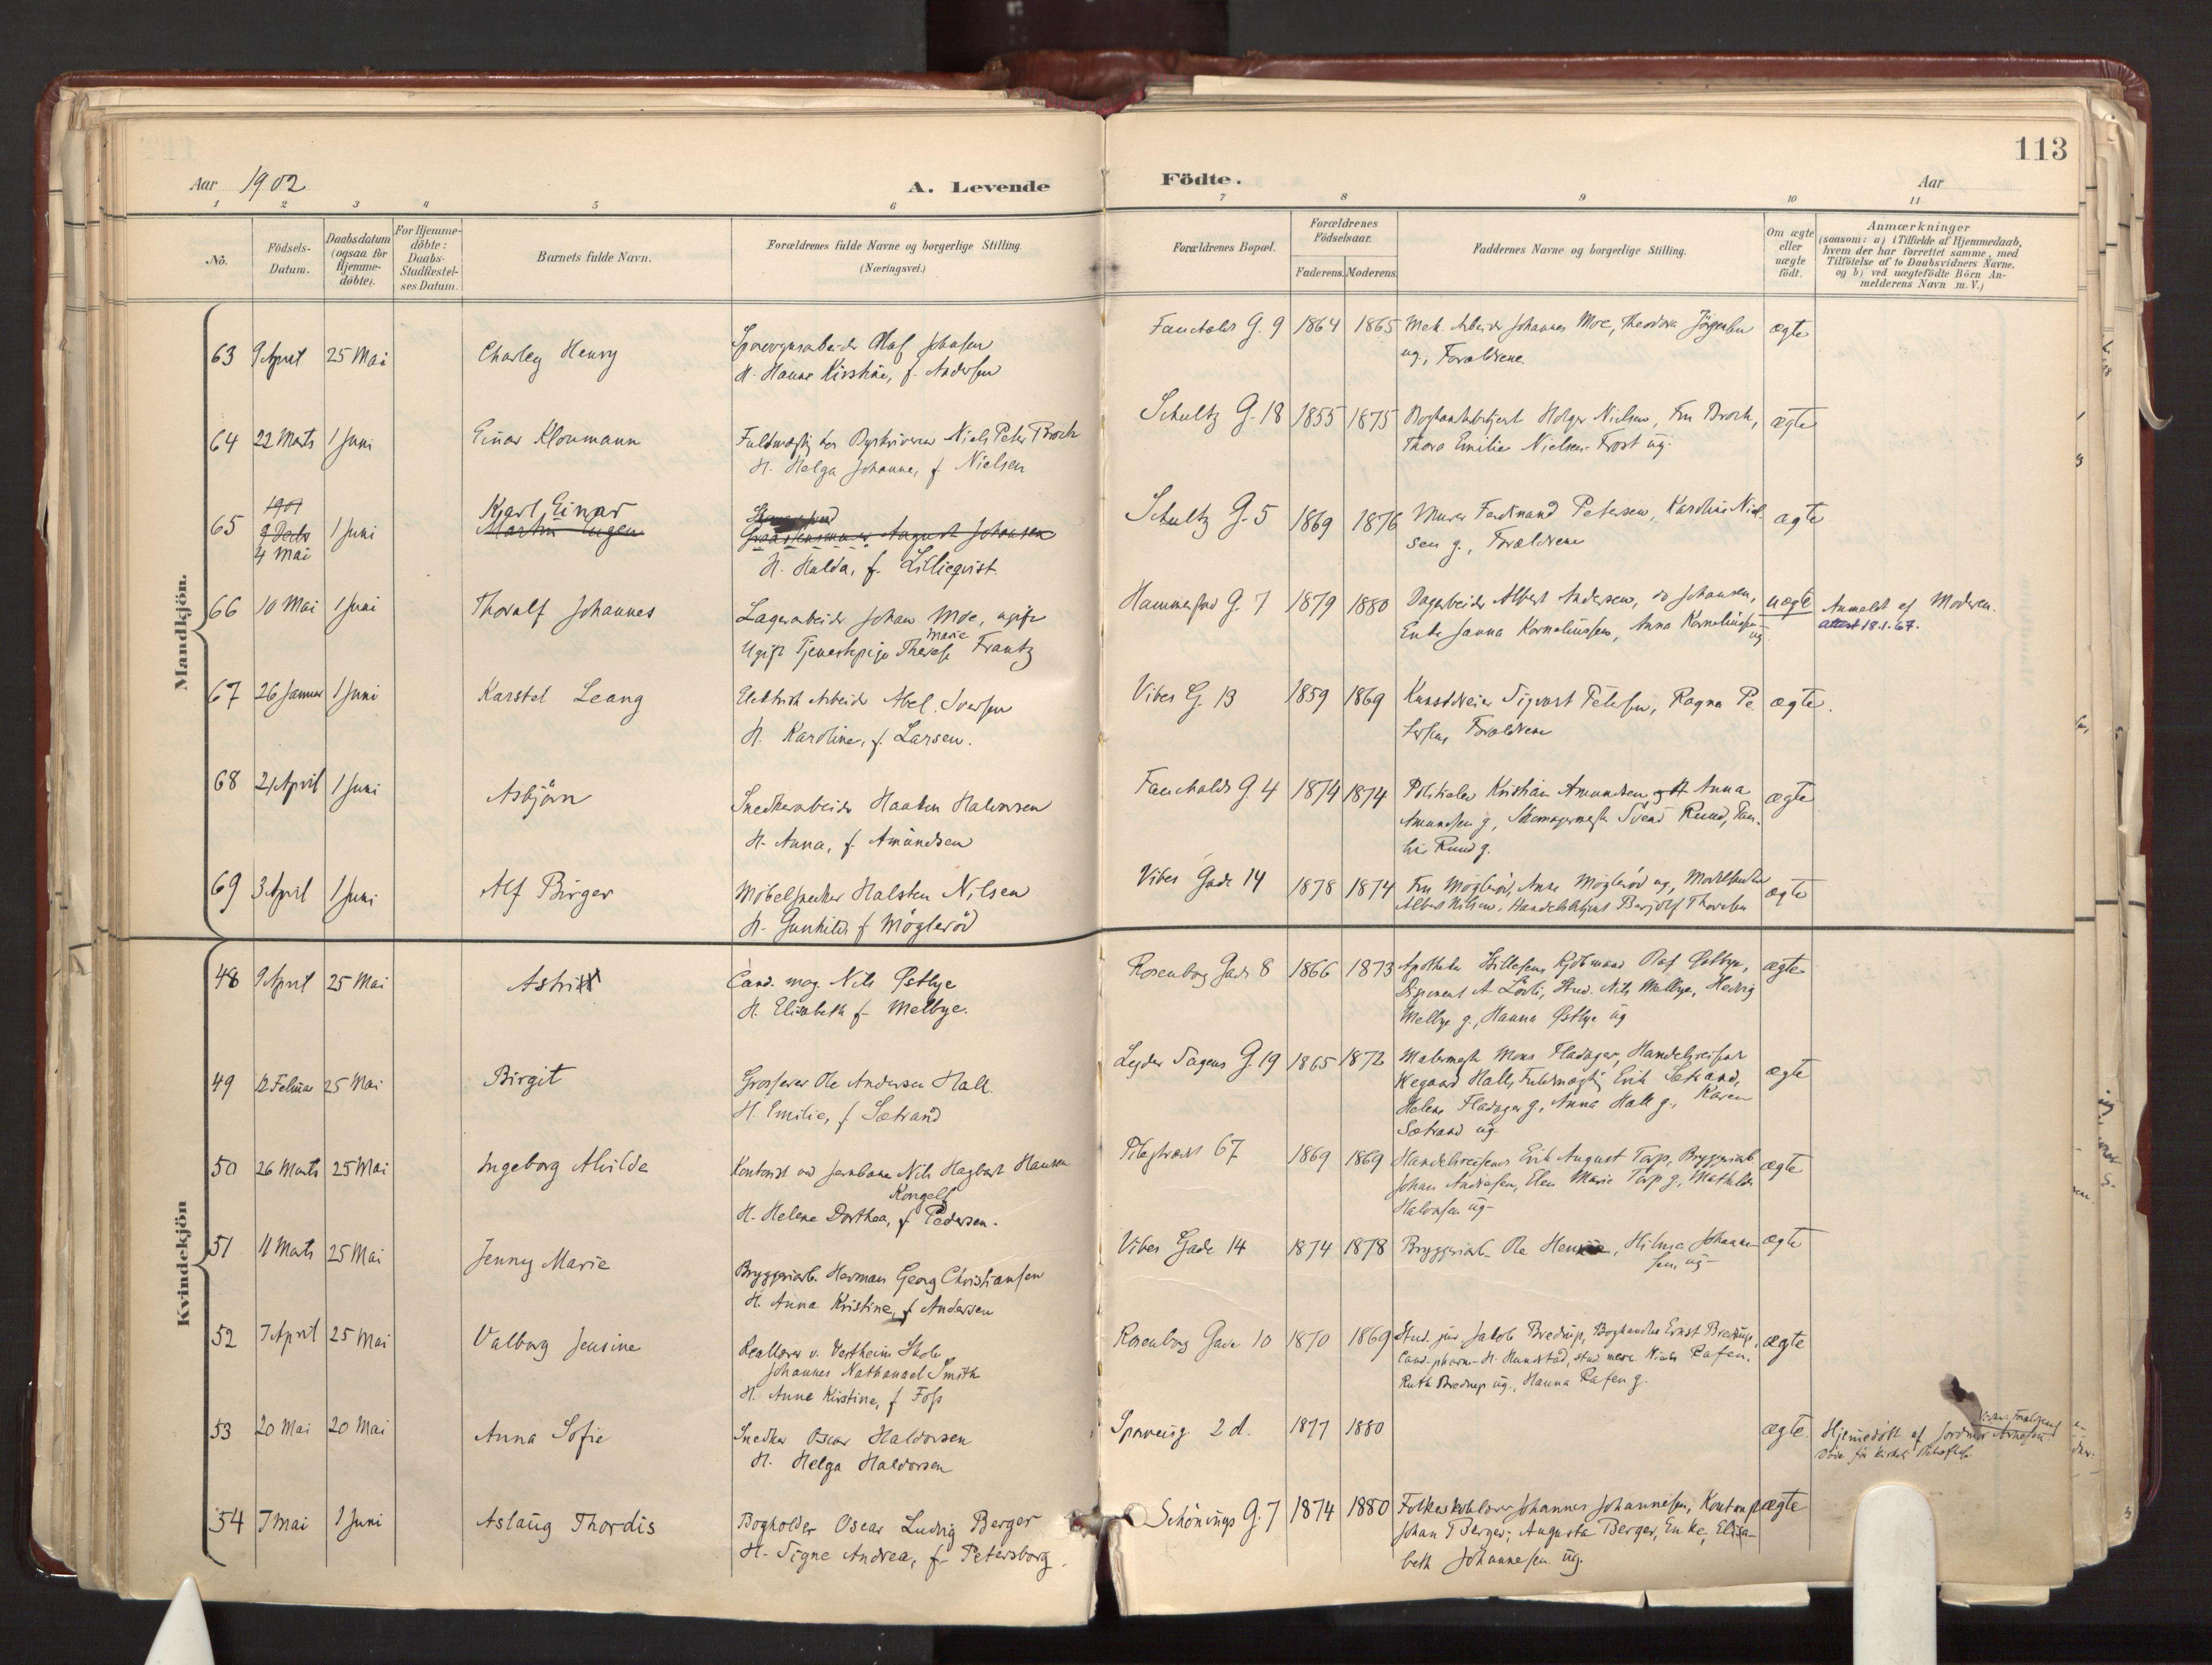 113
Aar 1902
A. Levende
Födte.
Aar
1 2 3 4 5 6 7 8 9 10 11
No.
Födsels-
Datum.
Daabsdatum
(ogsaa for
Hjemme-
döbte).
For Hjemme-
döbte:
Daabs-
Stadfæstel-
ses Datum.
Barnets fulde Navn.
Forældrenes fulde Navne og borgerlige Stilling.
(Næringsvei.)
Forældrenes Bopæl.
Forældrenes
Födselsaar.
Faderens. Moderens.
Faddernes Navne og borgerlige Stilling.
Om ægte
eller
uægte
födt.
Anmærkninger
(saasom: a) i Tilfælde af Hjemmedaab,
hvem der har forrettet samme, med
Tilföielse af to Daabsvidners Navne,
og b) ved uægtefödte Börn An-
melderens Navn m. V.)
Mandkjön.
63 9 April 25 Mai Charley Henry
Olaf Johnsen
H. Hanne Kirstine, f. Andersen
Fauchalds G. 9 1864 1865 Mek. Arbeider Johannes Moe, Theodora
ug., Forældrene
ægte
64 22 Marts 1 Juni Einar Kloumann
Niels Peter Broch
H. Helga Johanne, f Nielsen
Schultz G. 18 1855 1875 Holger Nielsen, Fru Broch,
Thora Emilie Nielsen-Frost ug.
ægte
65 1901
9 Decbr
4 Mai
1 Juni
Karl Einar
Martin Eugen
August Johansen
H. Hulda, f. Lilliequist
Schultz G. 5 1869 1876 Murer Ferdinand Petersen, Karoline Niel-
sen g., Forældrene
ægte
66 10 Mai 1 Juni Thoralf Johannes
Lagerarbeider Johan Moe, ugift
Marie
Ugift Tjenestepige Therese Frantz
Hammersted G. 7 1879 1880 Dagarbeider Albert Andersen, do Johansen,
Enke Janna Korneliussen, Anna Korneliussen
ug.
uægte
Anmeldt af Moderen.
attest 18.1.67.
67 26 Januar 1 Juni Karstel Leang
Elektrisk Arbeider Abel Iversen
H. Karoline, f. Larsen.
Vibes G. 13 1859 1869 Kunstdreier Sigvart Petersen, Ragna Pe
tersen, Forældrene
ægte
68 21 April 1 Juni Asbjörn
Snedkerarbeider Haaken Halvorsen
H. Anna, f. Amundsen
Fauchalds G. 4 1874 1874 Kristian Amundsen og H Anna
Amundsen g, Skomagermester Svend Ruud,
Ruud g.
ægte
69 3 April 1 Juni Alf Birger
Möbelsnedker Halsten Nilsen
H. Gunhild f Mögleröd
Vibes Gade 14 1878 1874 Fru Mögleröd, Anne Mögleröd ug,
Albert Nilsen, Handelsbetjent Thoresen
ægte
Kvindekjön
48 9 April 25 Mai Astri
Cand. mag. Nils Østbye
H. Elisabeth f. Melbye.
Rosenborg Gade 8 1866 1873 Apotheker Kjöbmand Olaf Østbye,
Disponent A Stud. Nils Melbye, Hedvig
Melbye g., Hanna Østbye ug
ægte
49 12 Februar 25 Mai Birgit
Grosserer Ole Andersen Hall
H. Emilie, f Sætrand
Lyder Sagens G. 19 1865 1872 Malermester Mons Fladager, Handelsreisende
Wegaard Hall, Fuldmægtig Erik Sætrand,
Helene Fladager g., Anna Hall g., Karen
Sætrand ug
ægte
50 26 Marts 25 Mai Ingeborg Alvilde
Kontorist ved Jernbanen Nils Hagbart Hansen
Kongelf
H. Helene Dorthea, f Pedersen.
Pilestræde 67 1869 1869 Handelsreisende Erik August Tarp, Bryggeriarb.
Johan Andresen, Elen Marie Tarp g, Mathilde
Halvorsen ug
ægte
51 11 Marts 25 Mai Jenny Marie
Bryggeriarb. Herman Georg Christiansen
H. Anna Kristine, f Andersen
Vibes Gade 14 1874 1878 Bryggeriarb. Ole Hilma Johanne
sen, ug
ægte
52 7 April 25 Mai Valborg Jensine
Reallærer v. Vestheim Skole
Johannes Nathanael Smith
H. Anna Kirstine, f Foss
Rosenborg Gade 10 1870 1869 Stud. jur. Jakob Bredrup, Boghandler Ernst Bredrup,
Cand. pharm. H. Hundstad, stud med. Rafen,
Ruth Bredrup ug., Hanna Rafen g.
ægte
53 20 Mai 20 Mai Anna Sofie
Snedker Oscar Haldorsen
H. Helga Haldorsen
Sporveisg 2 d. 1877 1880
ægte.
Hjemmedöbt af Jordmor Arnesen
54 7 Mai 1 Juni Aslaug Thordis
Bogholder Oscar Ludvig Berger
H. Signe Andrea, f. Petersborg.
Schönings G. 7 1874 1880 Folkeskolelærer Johannes Johannesen,
Johan Berger, Augusta Berger, Enke, Elisa-
beth Johannesen ug.
ægte